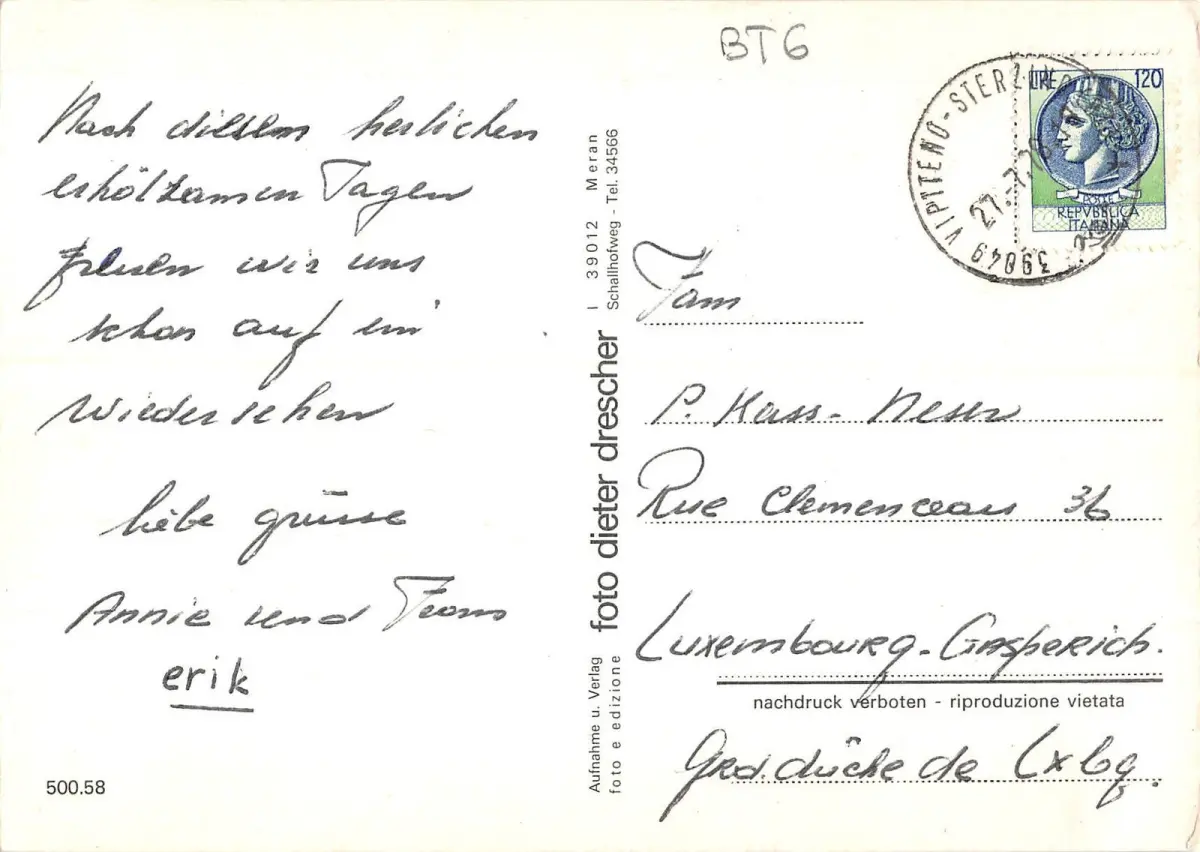 BT6
Nach diesem herlichen
erholzamen Tagen
freuen wir uns
schon auf ein
wiedersehen
liebe grüsse
Annie und Frans
erik
500.58
Aufnahme u. Verlag foto dieter drescher I 39012 Meran
foto e edizione Schallhofweg - Tel. 34566
VIPITENO-STERZING
27.-7.
39049
LIRE 120
POSTE
REPVBBLICA
ITALIANA
Fam
P. Kass-Neser
Rue Clemenceau 36
Luxembourg-Gasperich.
nachdruck verboten - riproduzione vietata
Grd. dûche de Lxbg.